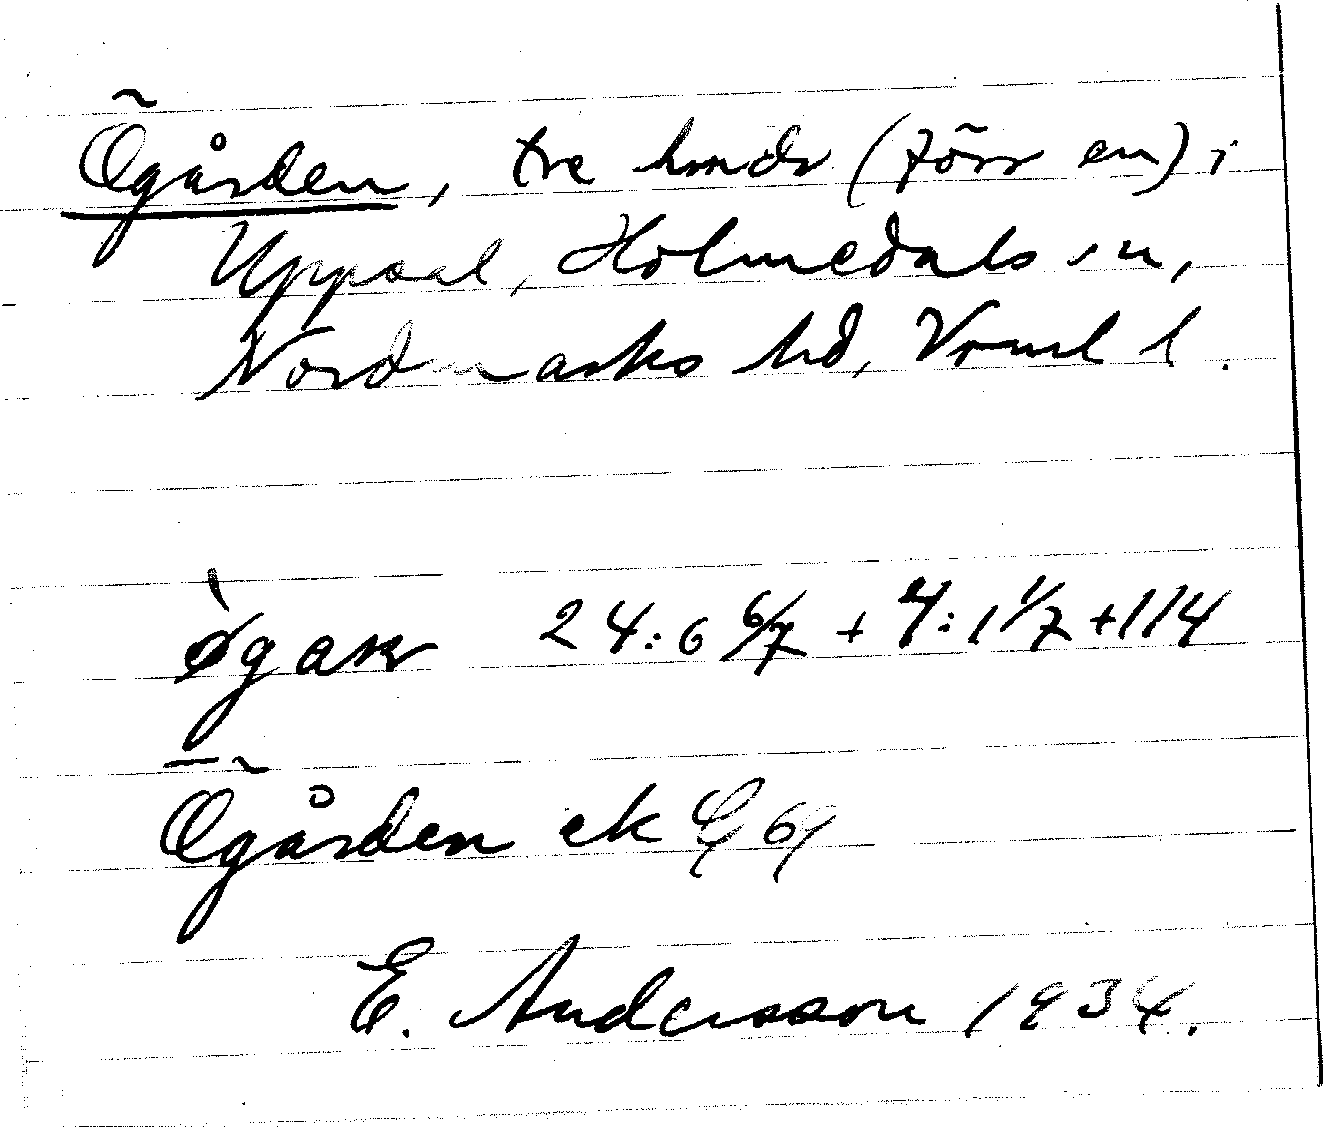 Ögården, tre hmdr (förr en) i
Uppsal, Holmedals sn,
Nordmarks hd, Vrml l.
ø̀gaɴ 24:6 6/7 + 4:1 1/7 + 114
Ögården ek G 69
E. Andersson 1934.